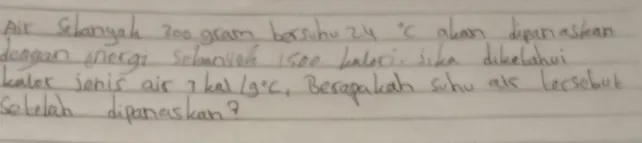 Air Sebanyak 200 gram bersuhu 24 °C akan dipanaskan
dengan energi Sebanyak 1500 kalori. jika diketahui
kalor jenis air 1 kal/g°C, Berapakah suhu air tersebut
Setelah dipanaskan?